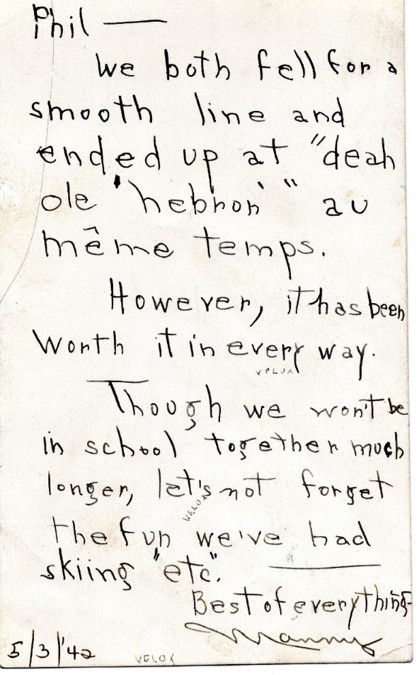 Phil —
we both fell for a
smooth line and
ended up at "deah
ole 'hebron' " au
même temps.
However, it has been
worth it in every way.
VELOX
Though we won't be
in school together much
longer, let's not forget
VELOX
the fun we've had
skiing "etc".
Best of everything-
Manny
5/3/'42
VELOX